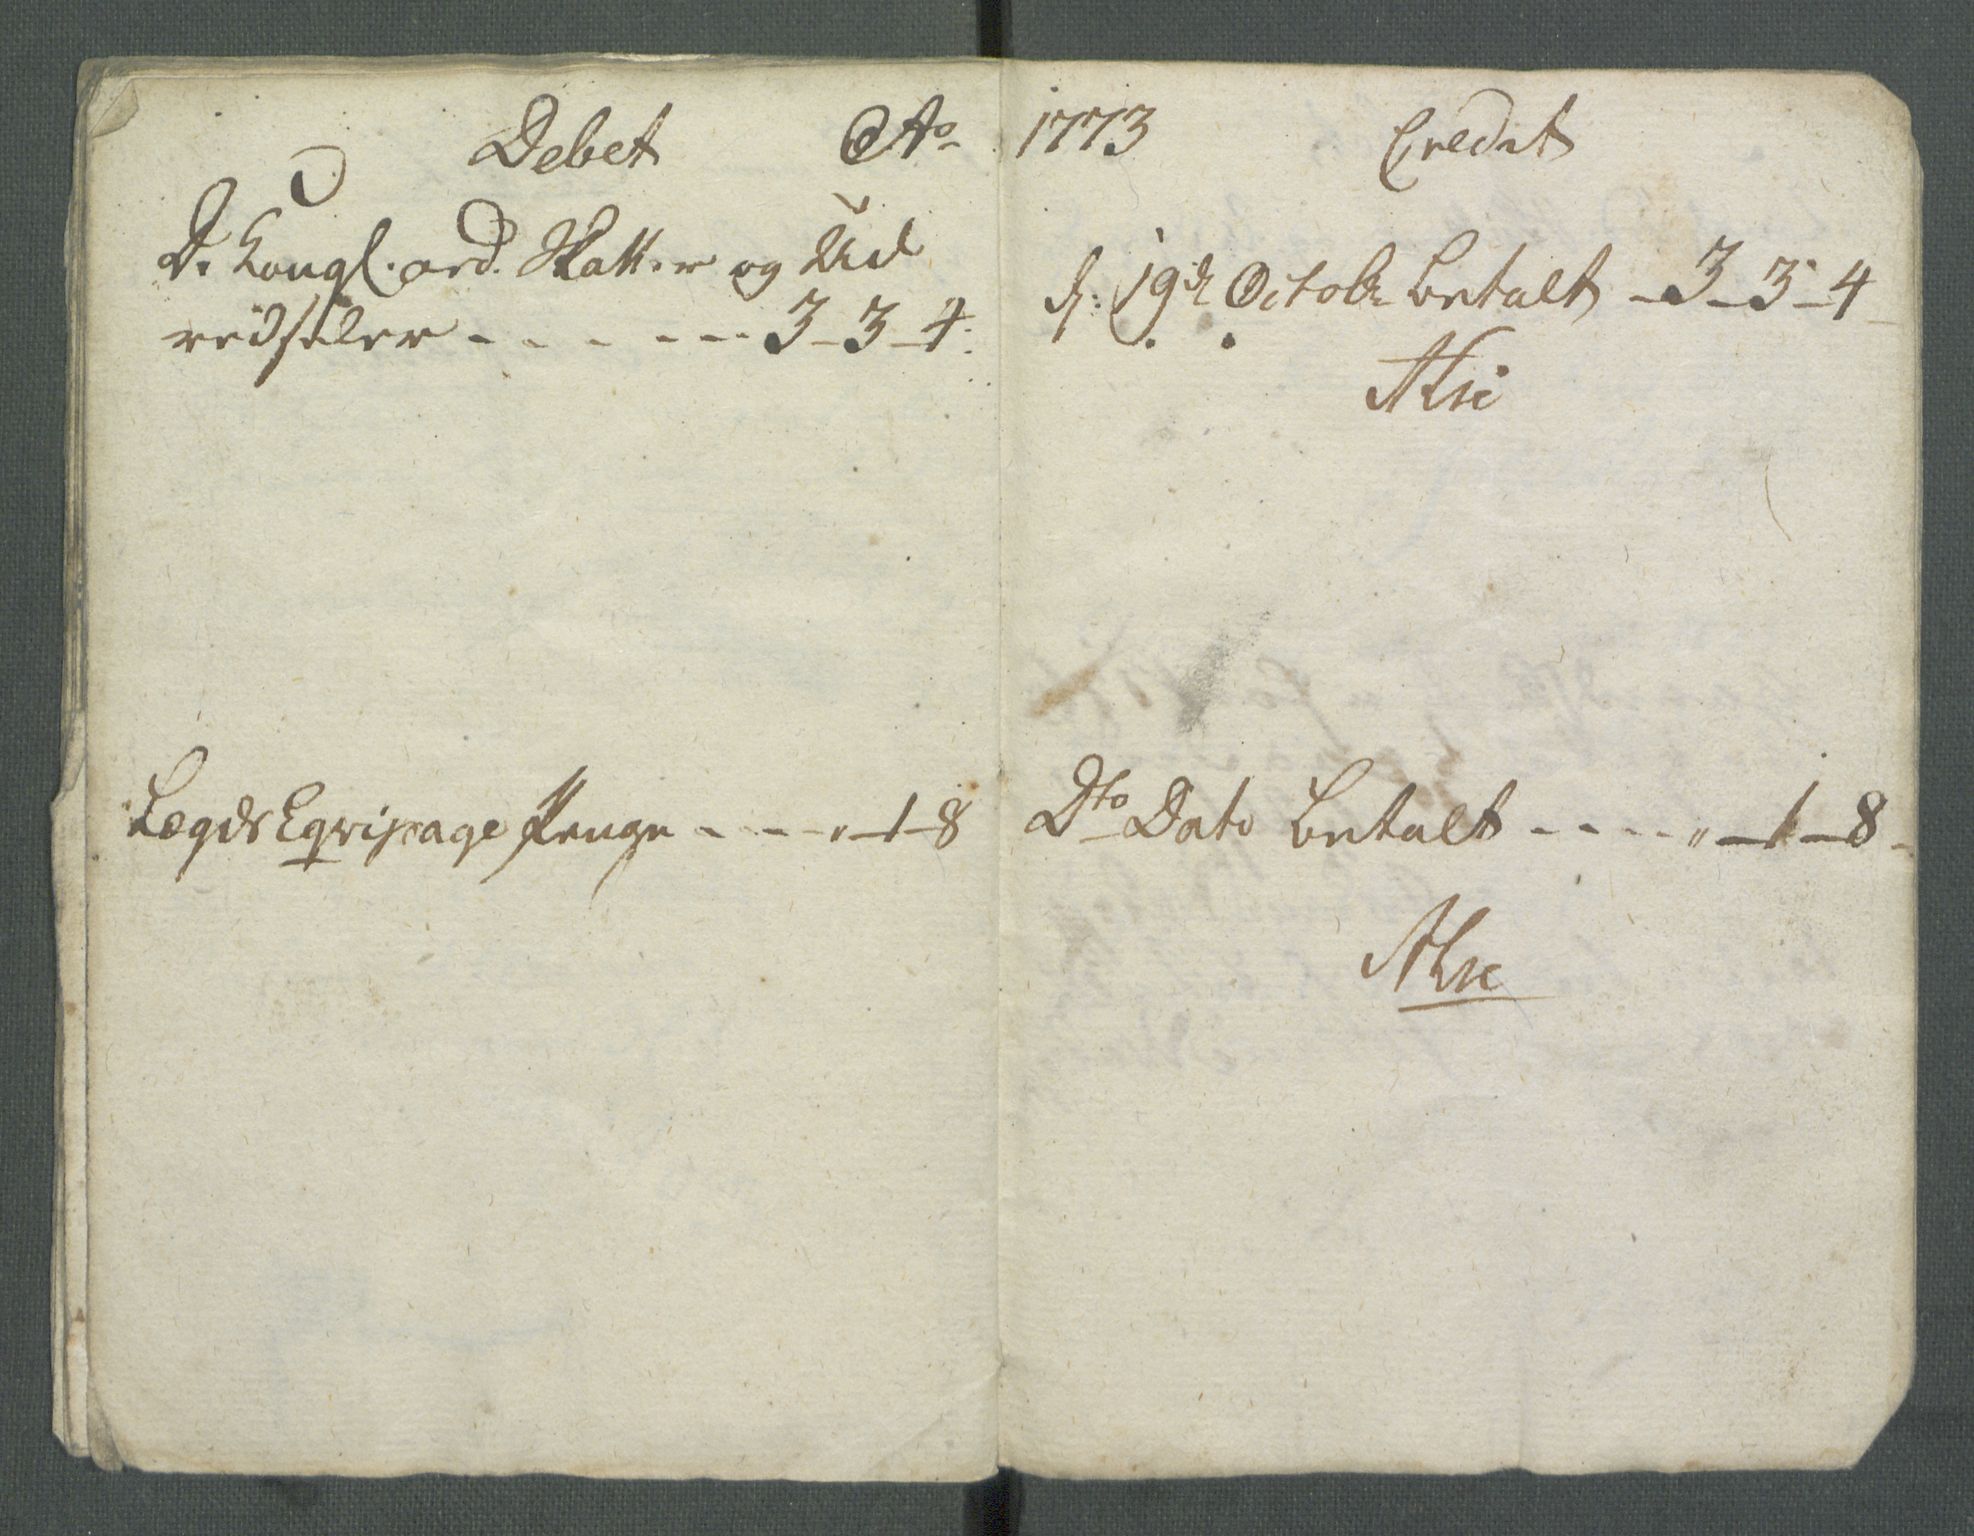 Debet Ao
D. Kongl. ord. Skatter og Ud
redseler - - - - - - 3 - 3 - 4.
Lægds Eqvipage Penge - - - - " - 1 - 8
1773 Credit
d: 19de Octobr betalt - 3 - 3 - 4
Dto Dato betalt - - - - - " - 1 - 8 -